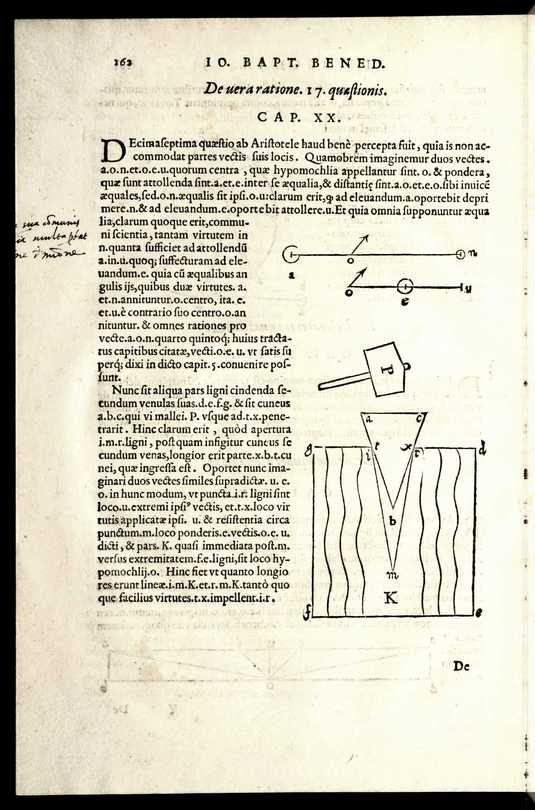 162
IO. BAPT. BENED.
De uera ratione. 17. quæstionis.
CAP. XX.
DEcimaseptima quæstio ab Aristotele haud benè percepta fuit, quia is non ac-
commodat partes vectis suis locis. Quamobrem imaginemur duos vectes.
a.o.n.et.o.e.u.quorum centra, quæ hypomochlia appellantur sint. o. & pondera,
quæ sunt attollenda sint.a.et.e.inter se æqualia,& distantię sint.a.o.et.e.o.sibi inuicē
æquales,sed.o.n.æqualis sit ipsi.o.u:clarum erit,ꝙ ad eleuandum.a.oportebit depri
mere.n.& ad eleuandum.e.oportebit attollere.u.Et quia omnia supponuntur æqua
lia,clarum quoque erit,commu-
ni scientia, tantam virtutem in
n.quanta sufficiet ad attollendū
a.in.u.quoq; suffecturam ad ele-
uandum.e. quia cū æqualibus an
gulis ijs,quibus duæ virtutes. a.
et.n.annituntur.o.centro, ita. e.
et.u.è contrario suo centro.o.an
nituntur. & omnes rationes pro
vecte.a.o.n.quarto quintoq; huius tracta-
tus capitibus citatæ,vecti.o.e. u. vt satis su
perq; dixi in dicto capit.5.conuenire pos-
sunt.
Nunc sit aliqua pars ligni cindenda se-
cundum venulas suas.d.e.f.g. & sit cuneus
a.b.c.qui vi mallei. P. vsque ad.t.x.pene-
trarit. Hinc clarum erit, quòd apertura
i.m.r.ligni, postquam infigitur cuneus se
cundum venas,longior erit parte.x.b.t.cu
nei, quæ ingressa est. Oportet nunc ima-
ginari duos vectes similes supradictæ. u. e.
o. in hunc modum, vt puncta.i.r. ligni sint
loco.u.extremi ipsi⁹ vectis, et.t.x.loco vir
tutis applicatæ ipsi. u. & resistentia circa
punctum.m.loco ponderis.e.vectis.o.e. u.
dicti, & pars. K. quasi immediata post.m.
versus extremitatem.f.e.ligni,sit loco hy-
pomochlij.o. Hinc fiet vt quanto longio
res erunt lineæ.i.m.K.et.r.m.K.tantò quo
que facilius virtutes.t.x.impellent.i.r.
a
o
n
o
e
u
P
a
c
g
i
t
x
r
d
b
m
K
f
e
De